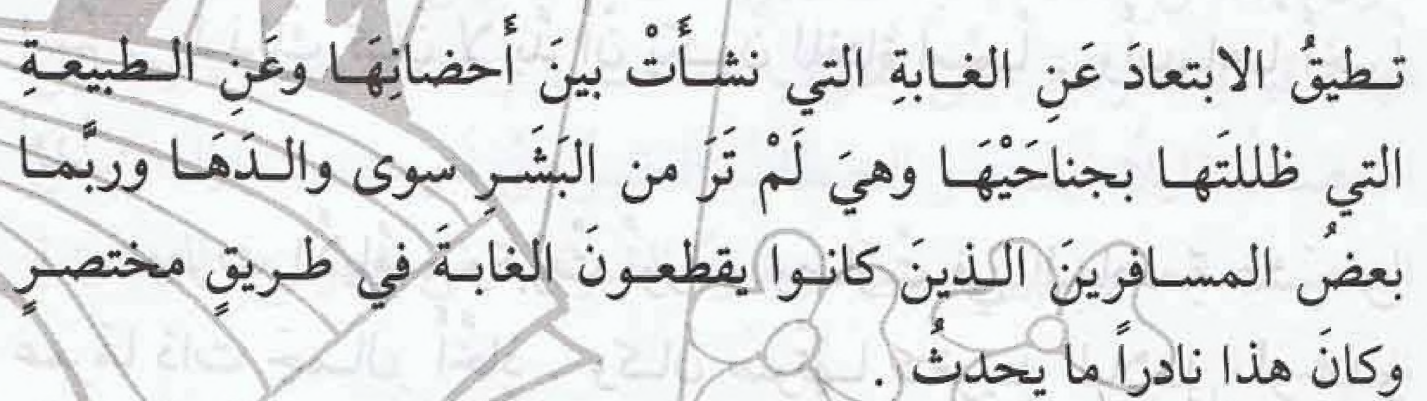 تطيقُ الابتعادَ عَنِ الغابةِ التي نشأَتْ بينَ أَحضانِهَا وعَنِ الطبيعةِ
التي ظللَتها بجناحَيْهَا وهيَ لَمْ تَرَ من البَشَرِ سوى والدَهَا وربَّما
بعضُ المسافرينَ الذينَ كانوا يقطعونَ الغابةَ في طريقٍ مختصرٍ
وكانَ هذا نادراً ما يحدثُ .